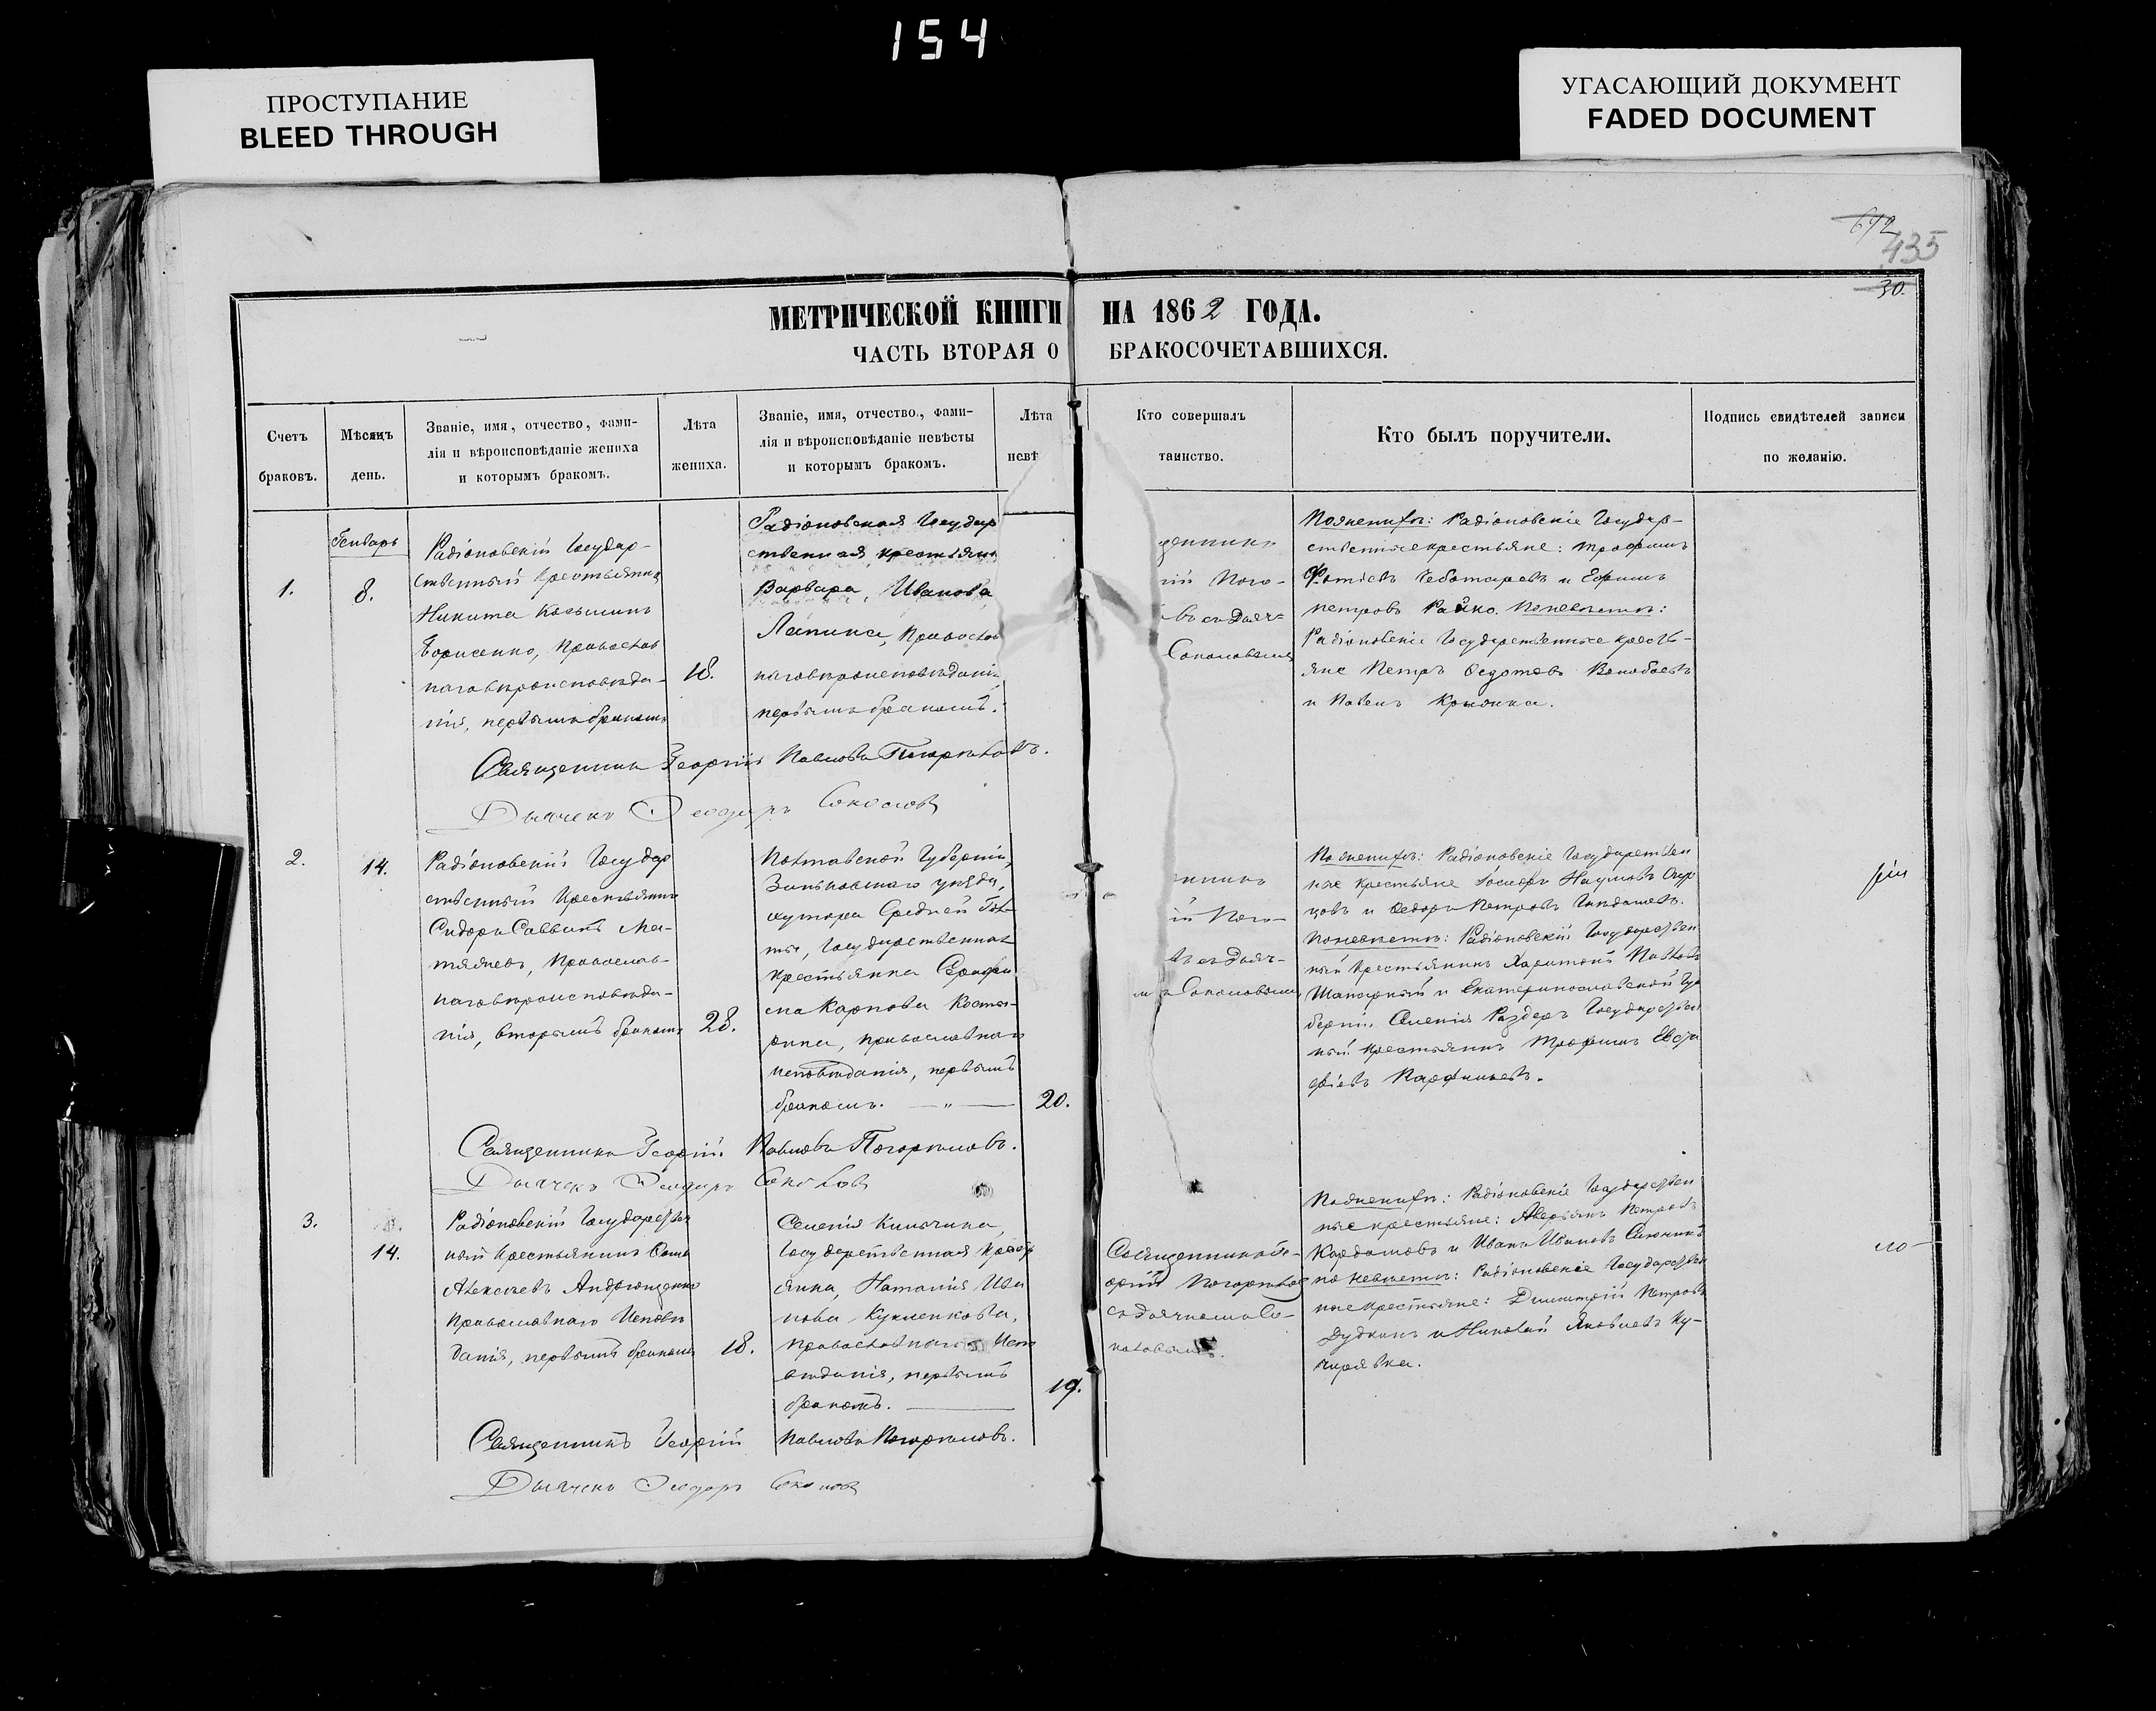 154
ПРОСТУПАНИЕ
BLEED THROUGH
УГАСАЮЩИЙ ДОКУМЕНТ
FADED DOCUMENT
435
30.
МЕТРИЧЕСКОЙ КНИГИ НА 1862 ГОДА.
ЧАСТЬ ВТОРАЯ О БРАКОСОЧЕТАВШИХСЯ.
Счетъ
браковъ.
Мѣсяцъ
день.
Званіе, имя, отчество, фами-
лія и вѣроисповѣданіе жениха
и которымъ бракомъ.
Лѣта
жениха.
Званіе, имя, отчество, фами-
лія и вѣроисповѣданіе невѣсты
и которымъ бракомъ.
Лѣта
невѣ
Кто совершалъ
таинство.
Кто былъ поручители.
Подпись свидѣтелей записи
по желанію.
1.
Генварь
8.
Радіоновскій Государ-
ственный крестьянинъ
Никита Козьминъ
Борисенко, Православ
наго вѣроисповѣда-
нія, первымъ бракомъ
18.
Радіоновская Государ
ственная крестьян
Варвара, Иванова
Лапина, Православ
наго вѣроисповѣданія
первымъ бракомъ.
щенникъ
ій Пого-
въ съ Дьяч-
Соколовымъ
По женихѣ: Радіоновскіе Государ-
ственные крестьяне: Трофимъ
Фотіевъ Чеботаревъ и Ефимъ
Петровъ Райко. По невѣстѣ:
Радіоновскіе Государственные кресть-
яне Петръ Федотовъ
и Павелъ
Священникъ Георгій Павловъ Погорѣловъ.
Дьячекъ Ѳеодоръ Соколовъ
2.
14.
Радіоновскій Государ
ственный Крестьянинъ
Сидоръ Саввинъ Ма-
, Православ-
наго вѣроисповѣда-
нія, вторымъ бракомъ
28.
Полтавской Губерніи,
Зиньковскаго уѣзда,
хутора Средней
Государственная
крестьянка
Карпова
православнаго
исповѣданія, первымъ
бракомъ. — „ —
20.
нникъ
ій Пого-
въ съ Дьяч-
Соколовымъ
По женихѣ: Радіоновскіе Государствен
ные крестьяне Іосифъ Наумовъ
и Федоръ Петровъ
По невѣстѣ: Радіоновскій Государствен
ный Крестьянинъ Харитонъ Павловъ
и Екатеринославской Гу
берніи, Селенія Раздоръ Государствен
ный крестьянинъ Трофимъ
Парфильевъ.
Священникъ Георгій Павловъ Погорѣловъ.
Дьячекъ Ѳеодоръ Соколовъ
3.
14.
Радіоновскій Государствен
ный Крестьянинъ
Алексѣевъ Андрющенко
Православнаго Исповѣ
данія, первымъ бракомъ
18.
Селенія Кильчина,
Государственная Кресть
янка, Наталія Ива
нова Кукленкова,
Православнаго Испо
вѣданія, первымъ
бракомъ.
19.
Священникъ Ге-
оргій Погорѣлов
съ Дьячкомъ Со-
коловымъ.
По женихѣ: Радіоновскіе Государствен
ные крестьяне: Аверьянъ Петровъ
Кардашовъ и Иванъ Ивановъ
по невѣстѣ: Радіоновскіе Государствен
ные крестьяне: Димитрій Петровъ
Дудкинъ и Николай Яковлевъ Ку-
чирявка.
Священникъ Георгій Павловъ Погорѣловъ.
Дьячекъ Ѳеодоръ Соколовъ